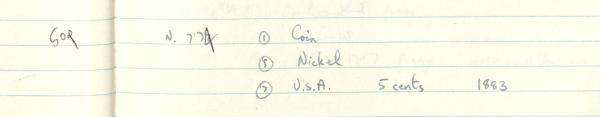 502 N. ①  Coin
⑧ Nickel
⑦ U.S.A. 5 cents 1883